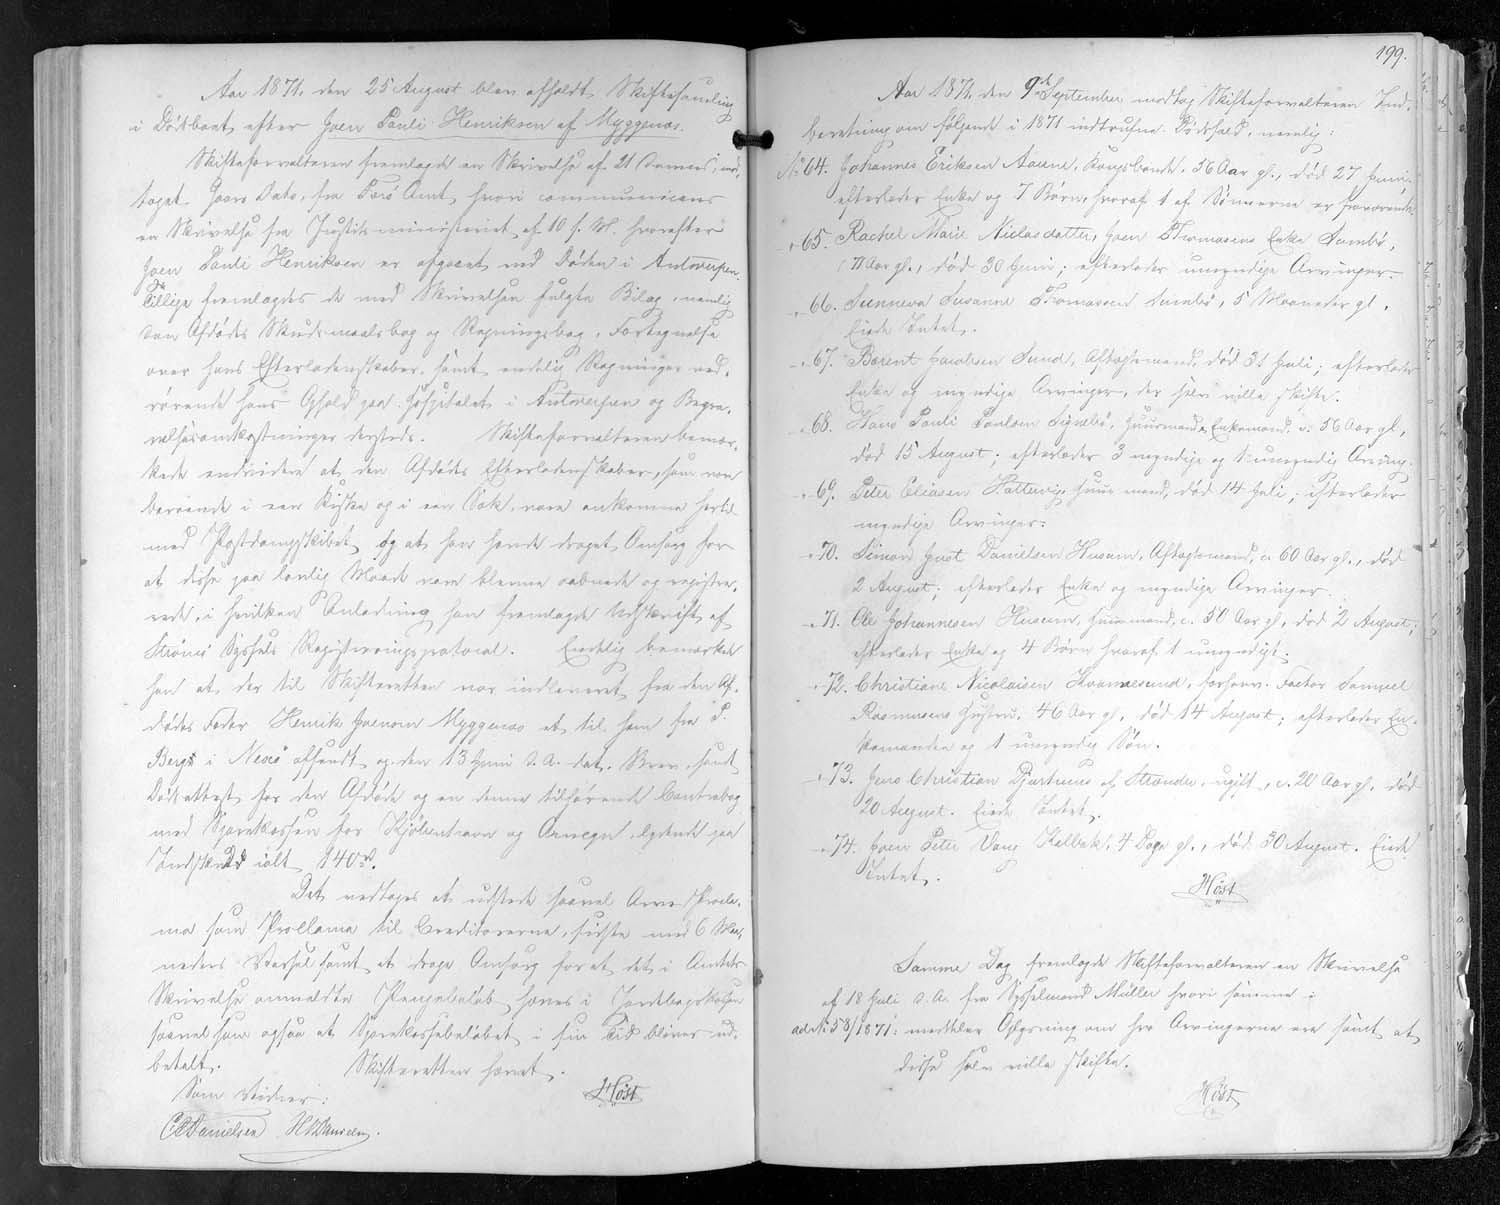 Aar 1871, den 25 August blev afholdt Skiftesamling
i Dødsboet efter Joen Pauli Henriksen af Myggenæs.
Skifteforvalteren fremlagde en Skrivelse af 21 dennes, mod-
taget Dato, fra Færø Amt, hvori communiceres
en Skrivelse fra Justitsministeriet af 10 f. M. hvorefter
Joen Pauli Henriksen er afgaaet ved Døden i Antwerpen.
Tillige fremlagdes de med Skrivelsen fulgte Bilag, nemlig
den Afdødes Skudsmaalsbog og Regningsbog, Fortegnelse
over hans Efterladenskaber, samt endelig Regninger ved-
rørende hans Ophold paa Hospitalet i Antwerpen og Begra-
velsesomkostninger dersteds. Skifteforvalteren bemær-
kede endvidere at den Afdødes Efterladenskaber, som vare
beroende i een Kiste og i een Sæk, vare ankomne hertil
med Postdampskibet, og at han havde draget Omsorg for
at disse paa lovlig Maade vare blevne aabnede og registre-
rede, i hvilken Anledning han fremlagde Udskrift af
Strømø Syssels Registreringsprotocol. Endelig bemærkede
han at der til Skifteretten var indleveret fra den Af-
dødes Fader Henrik Joensen Myggenæs et til ham fra P.
Berg i Nexø afsendt og den 13 Juni d. A. dat. Brev, samt
Dødsattest for den Afdøde og en denne tilhørende Contrabog
med Sparekassen for Kjøbenhavn og Omegn, lydende paa
Indskud ialt 140 rd.
Det vedtoges at udstede saavel Arve Procla-
ma som Proclama til Creditorerne, sidste med 6 Maa-
neders Varsel samt at drage Omsorg for at det i Amtets
Skrivelse anmeldte Pengebeløb hæves i Jordebogskassen
saavel som ogsaa at Sparekassebeløbet i sin Tid bliver ud-
betalt. Skifteretten hævet.
Høst
Som Vidner:
C Danielsen H Danielsen.
199.
Aar 1871, den 9de September modtog Skifteforvalteren Ind-
beretning om følgende i 1871 indtrufne Dødsfald, nemlig:
No 64. Johannes Eriksen Kongsbonde, 36 Aar gl., død 27 Juni,
efterlader Enke og 7 Børn, hvoraf 1 af Sønnerne er fraværende
" 65. Rachel Marie Niclasdatter, Joen Thomasens Enke Sumbø,
71 Aar gl., død 30 Juni; efterlader umyndige Arvinger.
" 66. Sunneva Susanne Thomasen Sumbø, 5 Maaneder gl.,
Eiede Intet.
" 67. Barent Jacobsen Sund, Aftægtsmand, død 31 Juli; efterlader
Enke og myndige Arvinger, der selv ville skifte.
" 68. Hans Pauli Poulsen Signabø, Huusmand, Enkemand, c. 56 Aar gl.,
død 15 August; efterlader 3 myndige og 1 umyndig Arving.
" 69. Peter Eliasen Hattervig, Huusmand, død 14 Juli; efterlader
myndige Arvinger.
" 70. Simon Just Danielsen Husum, Aftægtsmand, c. 60 Aar gl., død
2 August; efterlader Enke og myndige Arvinger.
" 71. Ole Johannesen Husum, Huusmand, c. 50 Aar gl., død 2 August;
efterlader Enke og 4 Børn hvoraf 1 umyndigt.
" 72. Christiane Nicolaisen Kvannesund, forhenv. Factor Samuel
Rasmussens Hustru, 46 Aar gl., død 14 August; efterlader En-
kemanden og 1 umyndig Søn.
" 73. Jens Christian Djurhuus af Strænder, ugift, c. 20 Aar gl., død
20 August. Eiede Intet.
" 74. Joen Peter Vang Kalbak, 4 Dage gl., død 30 August. Eiede
Intet.
Høst
Samme Dag fremlagde Skifteforvalteren en Skrivelse
af 18 Juli d. A. fra Sysselmand Müller hvori samme
ad No 58/1871: meddeler Oplysning om hvo Arvingerne ere samt at
disse selv ville skifte.
Høst